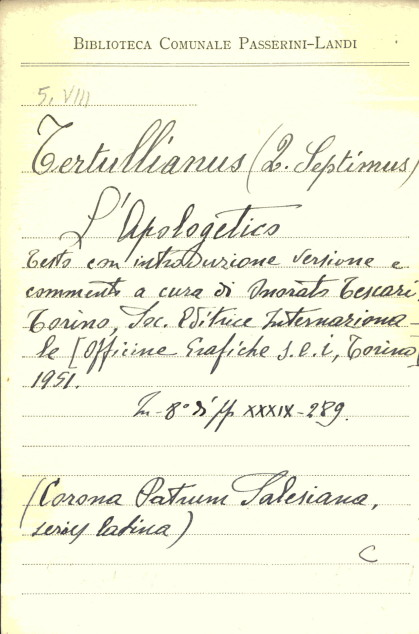 BIBLIOTECA COMUNALE PASSERINI-LANDI
5. VIII
Tertullianus (Q. Septimus)
L'Apologetico
Testo con introduzione versione e
commento a cura di Onorato Tescari
Torino, Soc. Editrice Internaziona-
le [Officine Grafiche s.e.i, Torino]
1951.
In-8° di pp XXXIX-289.
(Corona Patrum Salesiana,
series latina)
C